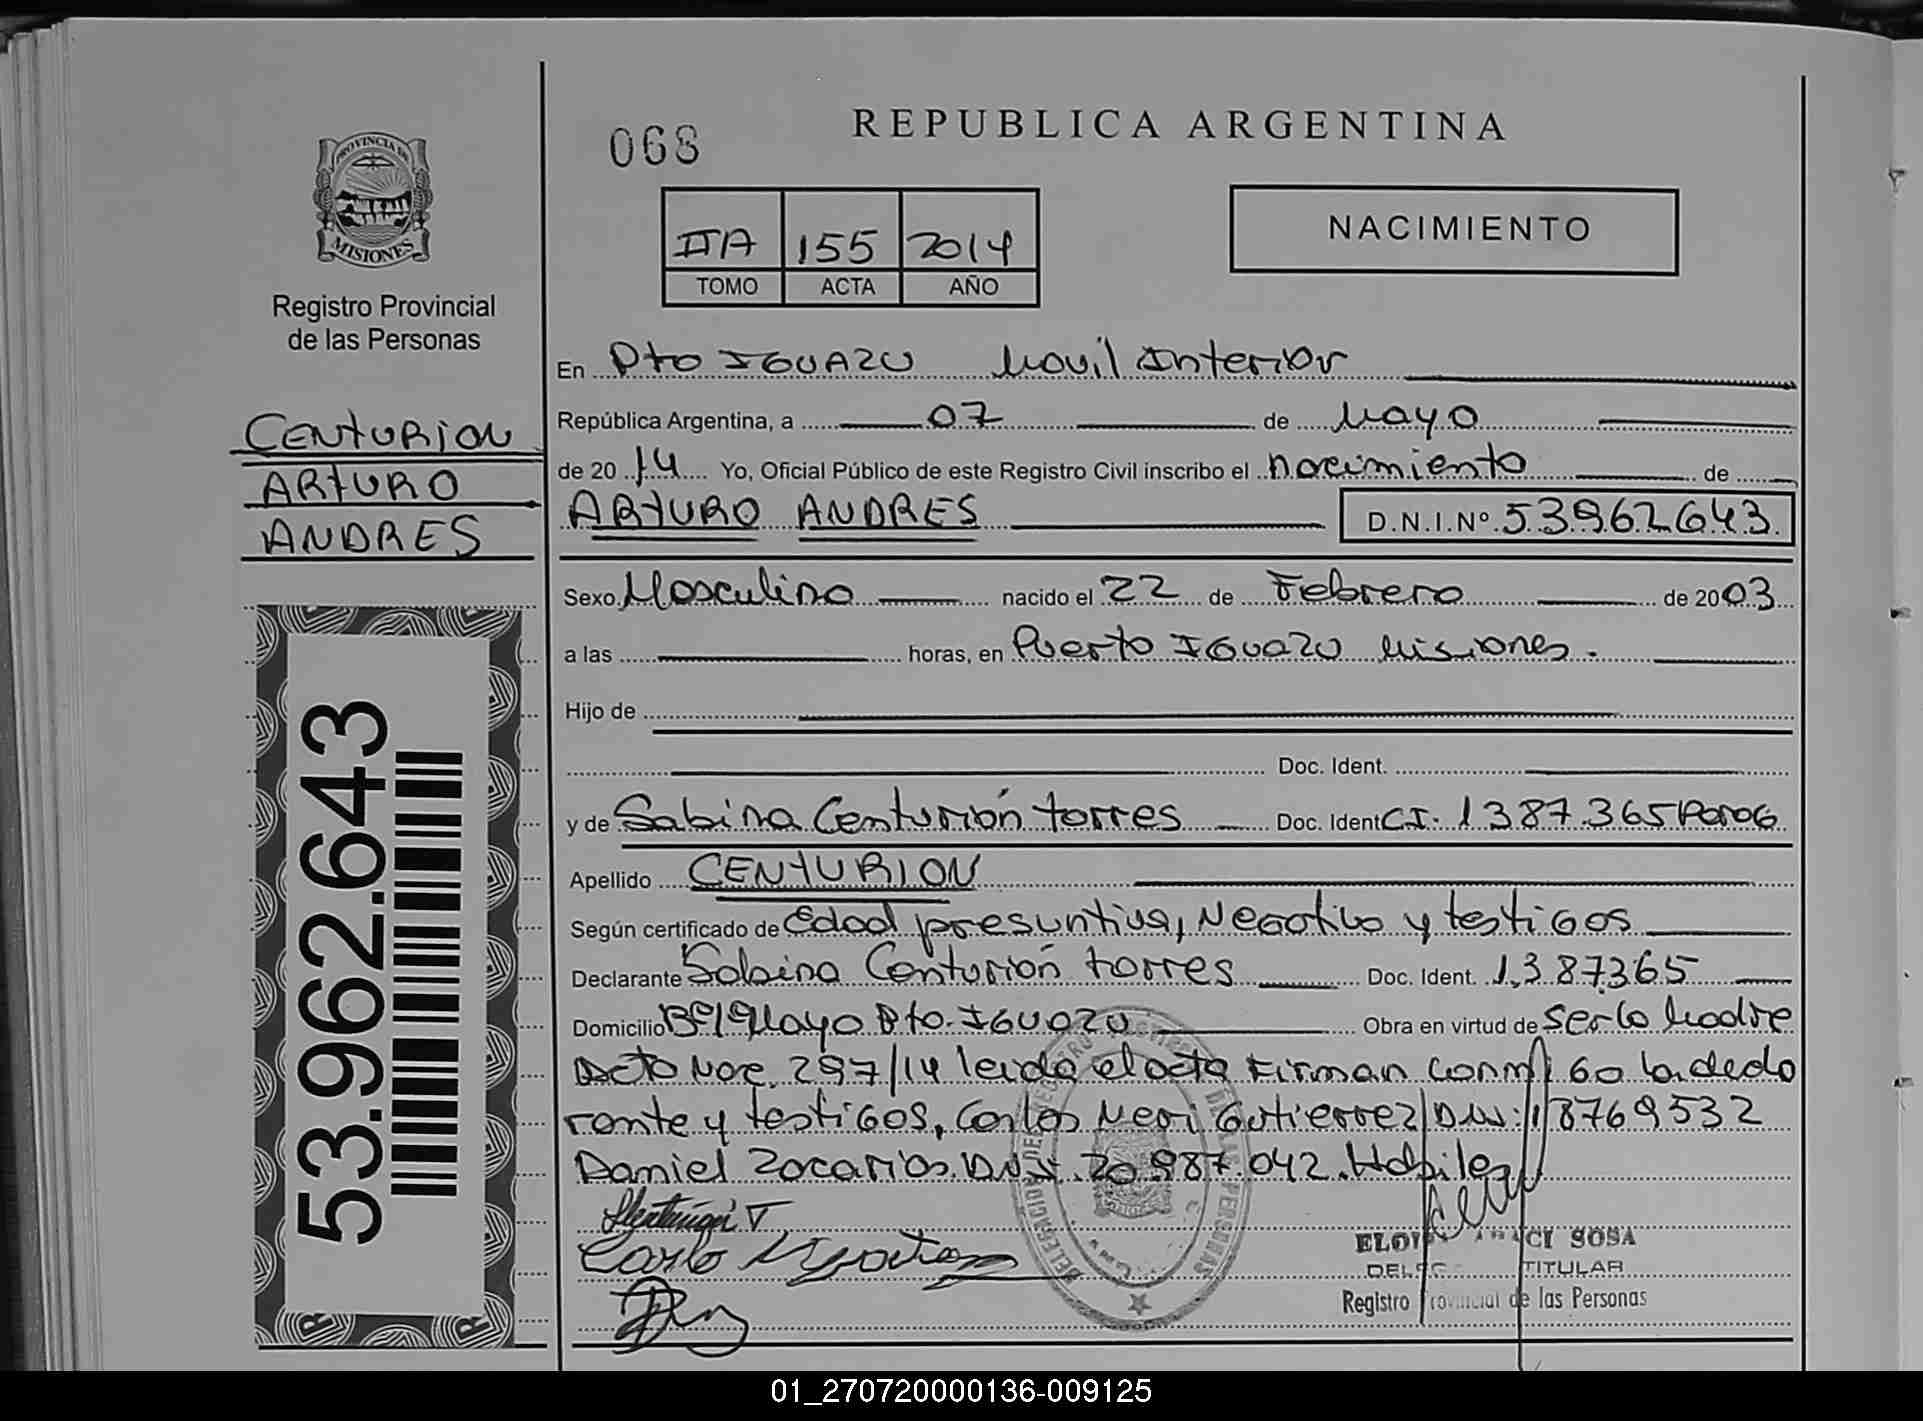 068
REPUBLICA ARGENTINA
PROVINCIA DE
MISIONES
Registro Provincial
de las Personas
IIA 155 2014
TOMO ACTA AÑO
NACIMIENTO
CENTURION
ARTURO
ANDRES
53.962.643
En Pto IGUAZU Movil Interior
República Argentina, a 07 de Mayo
de 2014 Yo, Oficial Público de este Registro Civil inscribo el nacimiento de
ARTURO ANDRES D.N.I.Nº 53962643
Sexo Masculino nacido el 22 de Febrero de 2003
a las horas, en Puerto IGUAZU Misiones.
Hijo de
Doc. Ident.
y de Sabina Centurión torres Doc. Ident CI. 1387.365 Parag
Apellido CENTURION
Según certificado de Edad presuntiva, Negativo y testigos
Declarante Sabina Centurión torres Doc. Ident. 1.387365
Domicilio Bº 1º Mayo Pto. IGUAZU Obra en virtud de ser la Madre
Acto Nac. 297/14 leida el acta Firman conmigo la decla
rante y testigos, Carlos Neri Gutierrez DNI: 18769532
Daniel Zacarias DNI. 20.987.042. Habiles
DELEGACION DE REGISTRO PROVINCIAL DE LAS PERSONAS
SOSA
TITULAR
Registro Provincial de las Personas
01_270720000136-009125